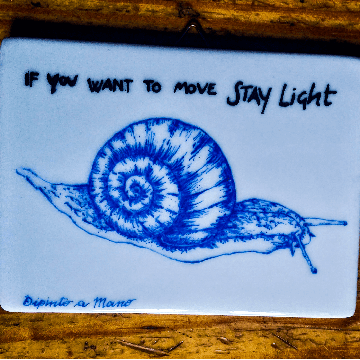 IF YOU WANT TO MOVE STAY Light
Dipinto a Mano